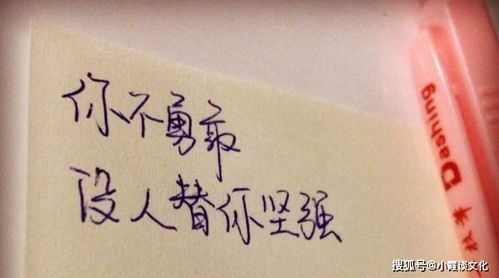 你不勇敢
没人替你坚强
Dashing
搜狐号@小霞谈文化